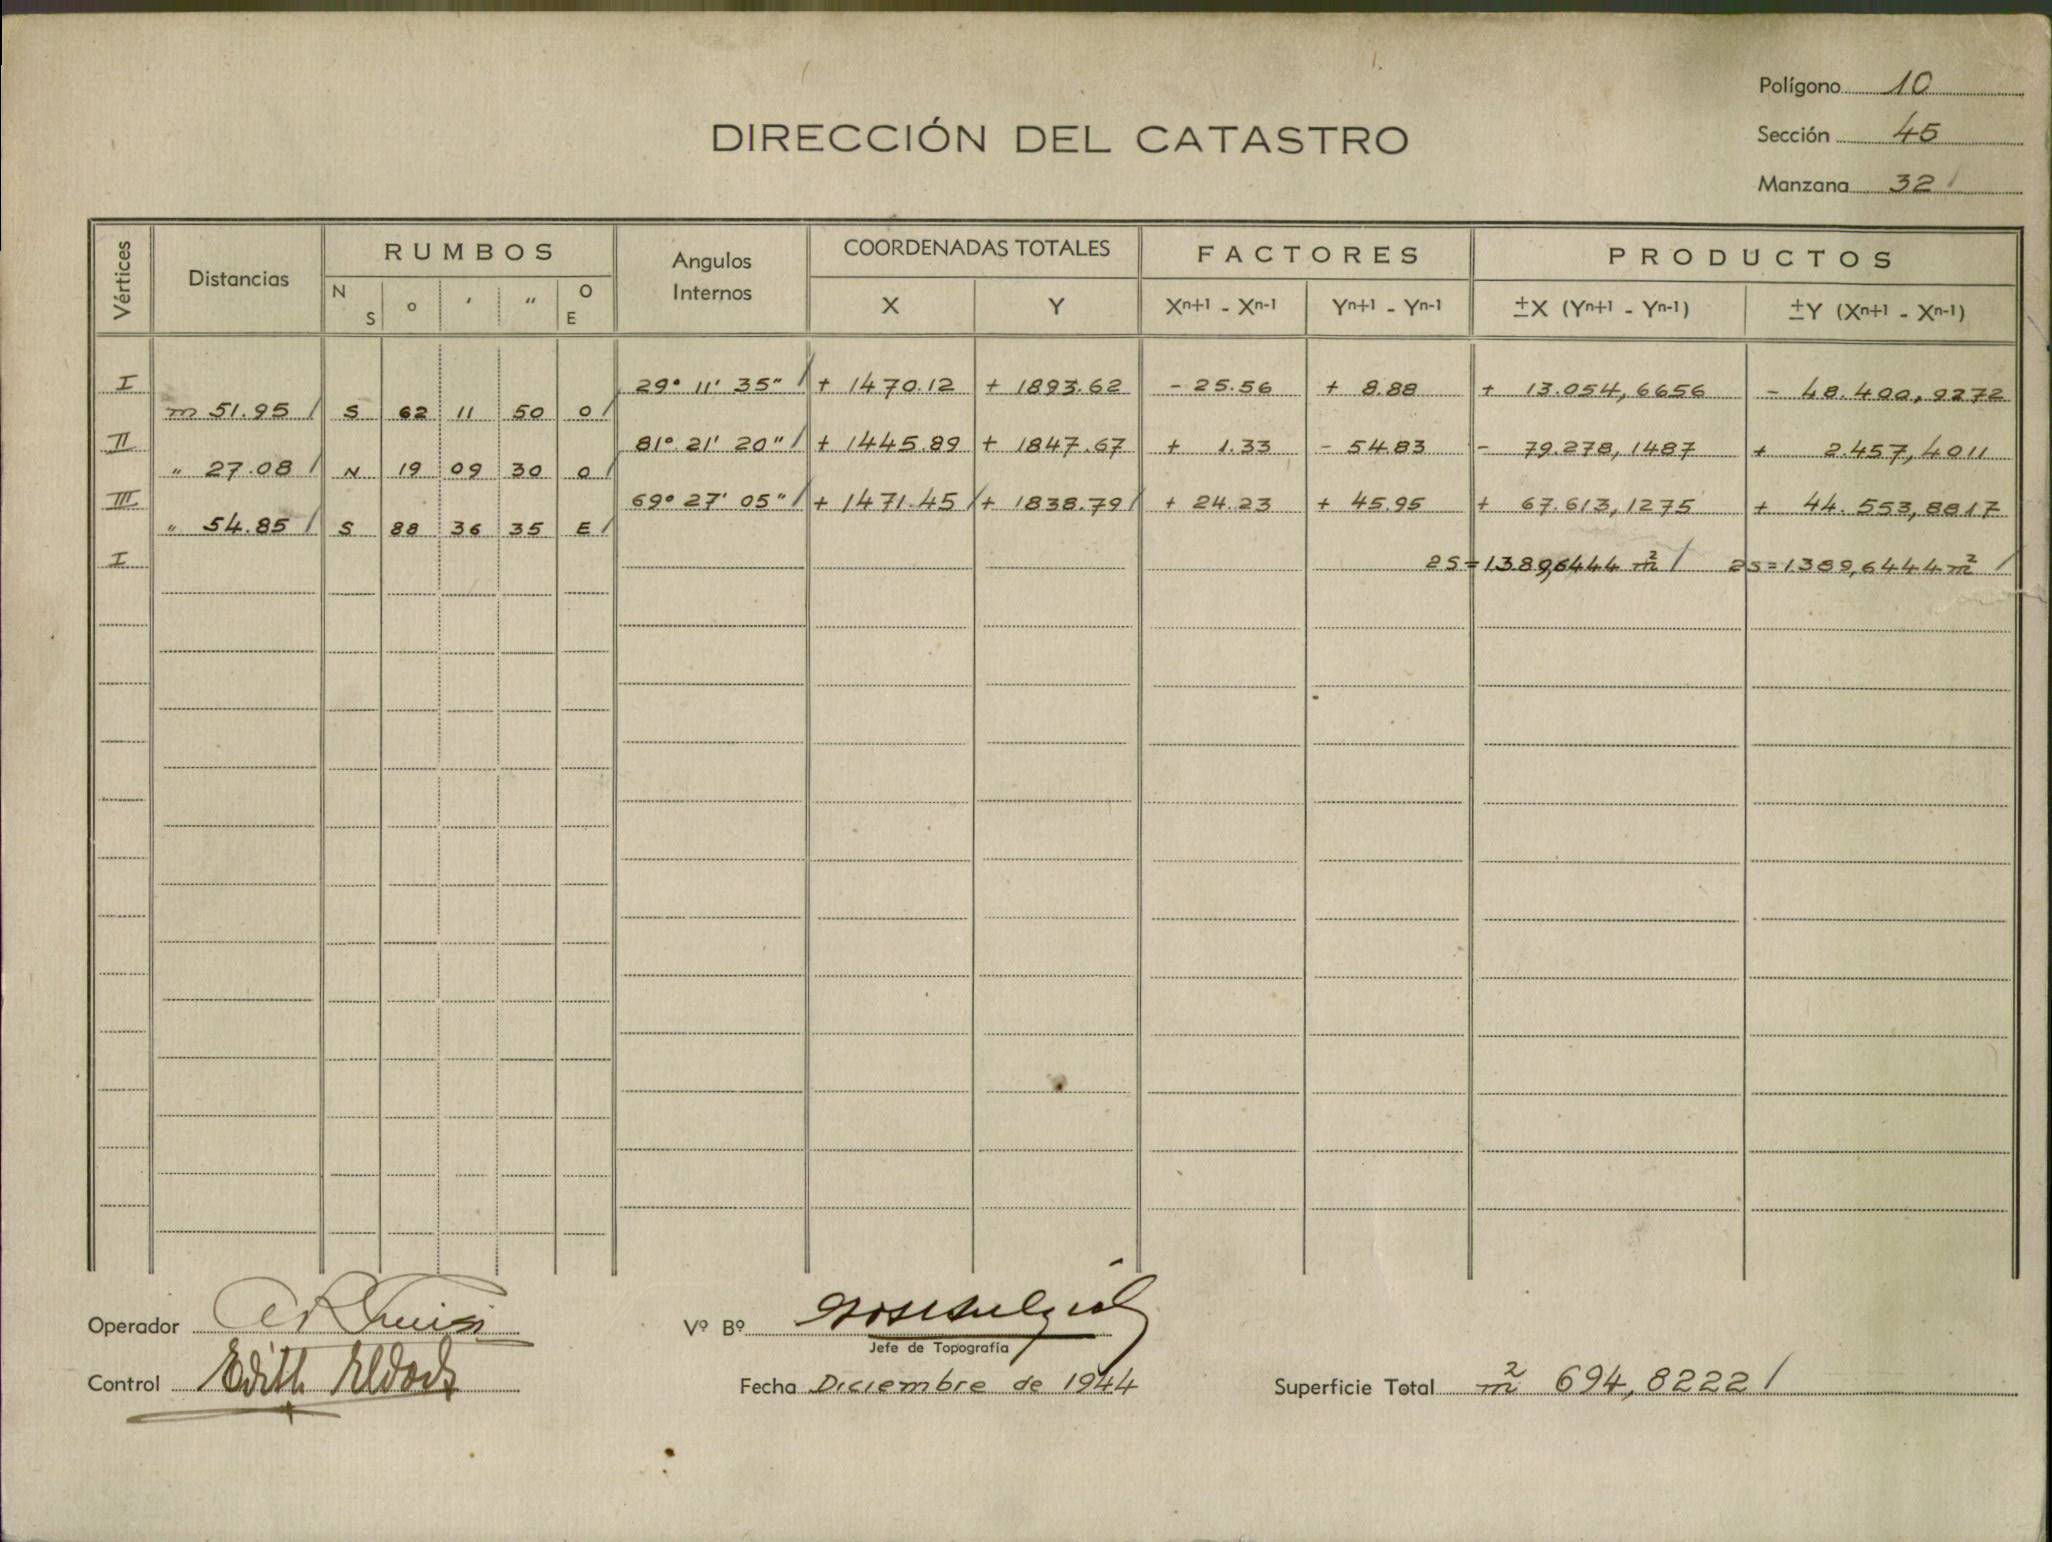 Polígono 10
DIRECCIÓN DEL CATASTRO
Sección 45
Manzana 32 /
Vértices Distancias RUMBOS Angulos Internos COORDENADAS TOTALES FACTORES PRODUCTOS
N S o ′ ″ O E X Y Xn+1 - Xn-1 Yn+1 - Yn-1 ±X (Yn+1 - Yn-1) ±Y (Xn+1 - Xn-1)
I 29° 11' 35" / + 1470.12 + 1893.62 - 25.56 + 8.88 + 13.054,6656 - 48.400,9272
m 51.95 / S 62 11 50 O /
II 81° 21' 20" / + 1445.89 + 1847.67 + 1.33 - 54.83 - 79.278,1487 + 2.457,4011
" 27.08 / N 19 09 30 O /
III 69° 27' 05" / + 1471.45 / + 1838.79 / + 24.23 + 45.95 + 67.613,1275 + 44.553,8817
" 54.85 / S 88 36 35 E /
I 2S=1389,6444 m² / 2S=1389,6444 m² /
Operador
Vº Bº
Jefe de Topografía
Control Edith
Fecha Diciembre de 1944
Superficie Total m² 694,8222 /